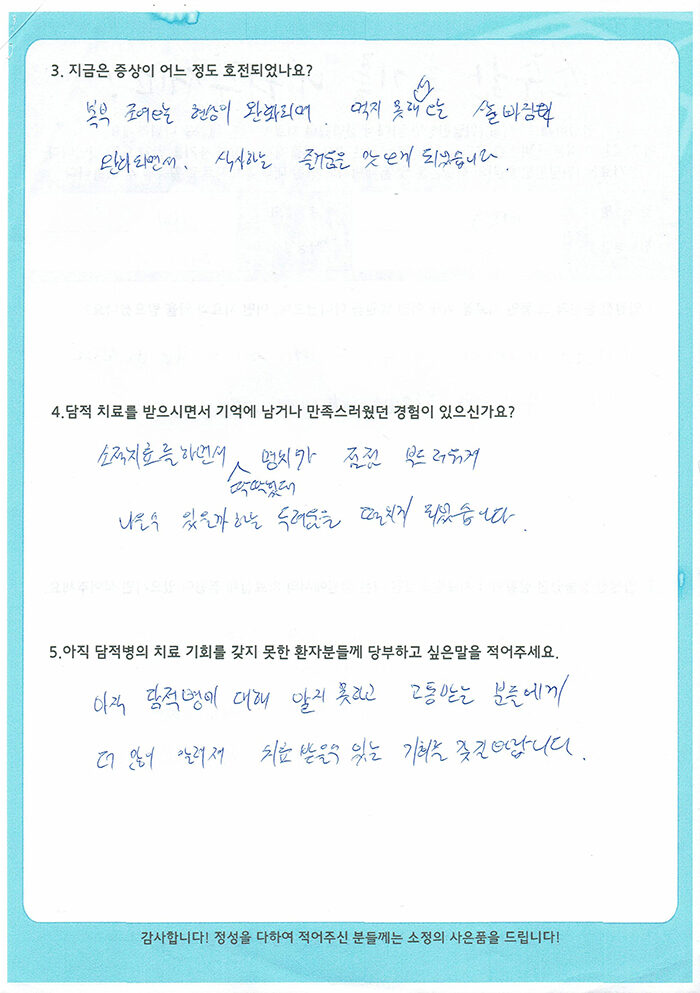 3. 지금은 증상이 어느 정도 호전되었나요?
복부 조여드는 현상이 완화되며. 먹지 못해서 오는
완화되면서. 식사하는 즐거움을 맛보게 되었습니다
4.담적 치료를 받으시면서 기억에 남거나 만족스러웠던 경험이 있으신가요?
소적치료를 하면서 딱딱했던 명치가 점점 부드러워져
나을수 있을까하는 두려움을 떨치게 되었습니다.
5.아직 담적병의 치료 기회를 갖지 못한 환자분들께 당부하고 싶은말을 적어주세요.
아직 담적병에 대해 알지 못하고 고통받는 분들에게
더 많이 알려져 치료 받을수 있는 기회를 갖길 바랍니다.
감사합니다! 정성을 다하여 적어주신 분들께는 소정의 사은품을 드립니다!